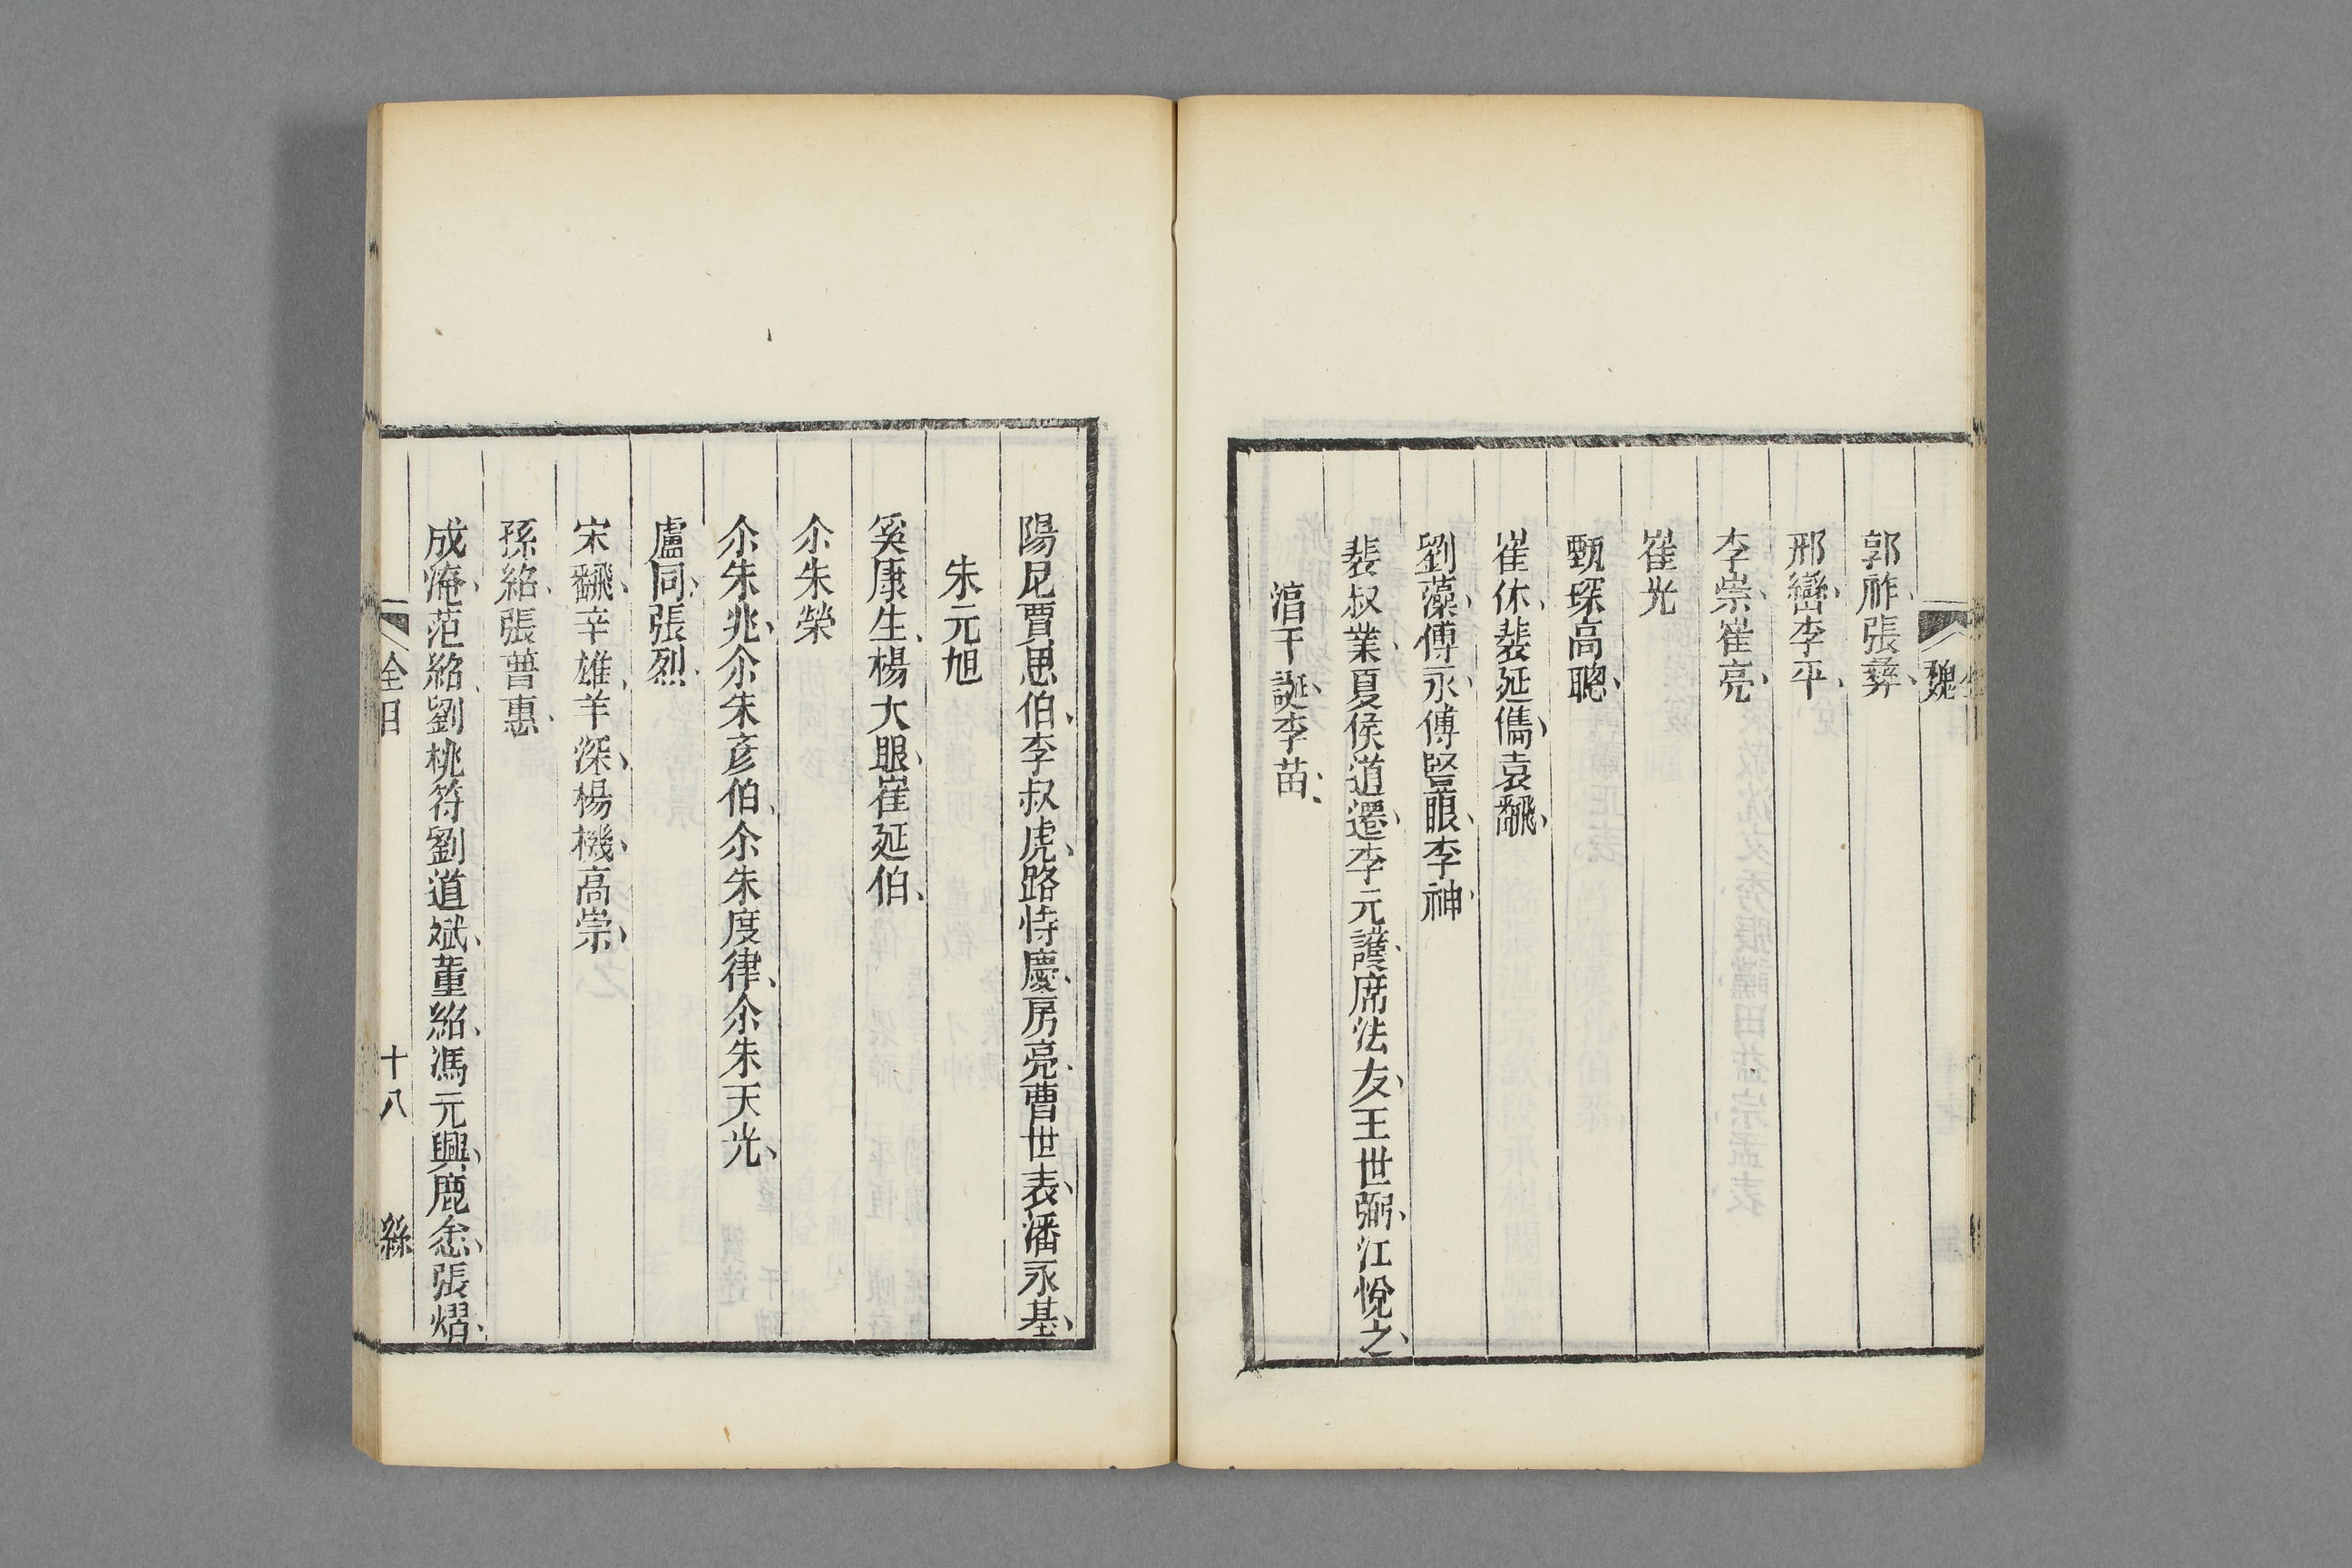 魏
郭祚、張彝、
邢巒、李平、
李崇、崔亮、
崔光
甄琛高聰、
崔休、裴延儁、袁飜、
劉藻、傅永、傅豎眼、李神、
裴叔業、夏侯道遷、李元護、席法友、王世弼、江悅之、
淯于誕、李苗、
陽尼賈思伯、李叔虎、路恃慶、房亮、曹世表、潘永基、
朱元旭
奚康生、楊大眼、崔延伯、
尒朱榮
尒朱兆、尒朱彥伯、尒朱度律、尒朱天光、
盧同、張烈、
宋飜、辛雄、羊深、楊機、高崇、
孫紹、張普惠、
成淹、范紹、劉桃符劉道斌、董紹、馮元興、鹿悆、張熠、
全目 十八 絲